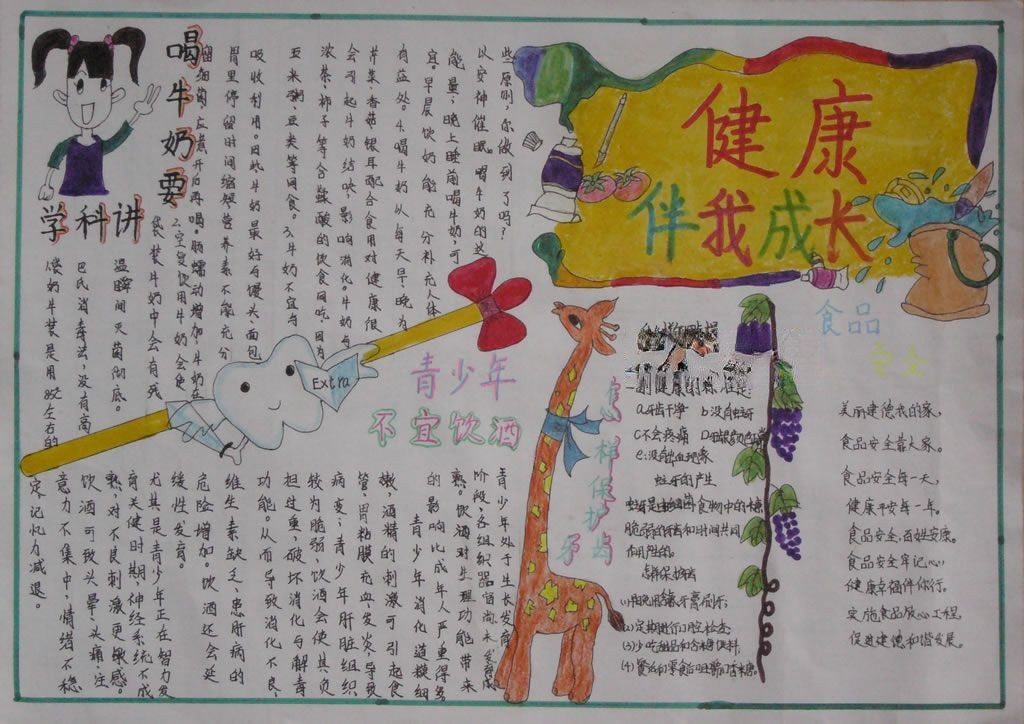 健康
伴我成长
喝牛奶要
学科讲
些原则,你做到了吗?
以安神催眠。喝牛奶的这
能量,晚上睡前喝牛奶,可
宜。早晨饮奶能充分补充人体
有益处。4.喝牛奶从每天早、晚为
芹菜、香菇、银耳配合食用对健康很
会引起牛奶结块,影响消化。牛奶与
浓茶、柿子等含鞣酸的饮食同吃,因为
玉米粥、豆类等同食。3.牛奶不宜与
吸收利用。因此牛奶最好与馒头、面包
胃里停留时间缩短,营养素不能充分
细菌,应煮开后再喝。肠蠕动增加,牛奶在
2.空复饮用牛奶会使
袋装牛奶中会有残
温瞬间灭菌彻底。
巴氏消毒法,没有高
装是用85℃左右的
Extra
青少年
不宜饮酒
青少年处于生长发育
阶段,各组织器官尚未发育成
熟。饮酒对生理功能带来
的影响比成年人严重得多
青少年消化道模细
嫩,酒精的刺激可引起食
管,胃粘膜充血,发炎,导致
病变;青少年肝脏组织
较为脆弱,饮酒会使其负
担过重,破坏消化与解毒
功能。从而导致消化不良,
维生素缺乏,患肝病的
危险增加。饮酒还会延
缓性发育。
尤其是青少年正在智力发
育关健时期,神经系统不成
熟,对不良刺激更敏感。
饮酒可致头晕、头痛、注
意力不集中,情绪不稳
定,记忆力减退。
怎样保护
牙齿
a.牙齿干净 b.没有虫牙
c.不会疼痛
e:没有出血现象
蛀牙的产生
食物中的糖
和时间共同
作用产生的。
怎样保护
(2)定期进行口腔检查
(3)少吃甜品和含糖饮料
食品
安全
美丽建德我的家,
食品安全靠大家。
食品安全每一天,
健康平安每一年。
食品安全,百姓安康。
食品安全牢记心
健康幸福伴你行。
实施食品放心工程
促进建德和谐发展。